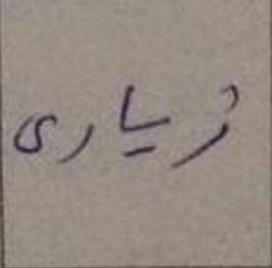 زیاری